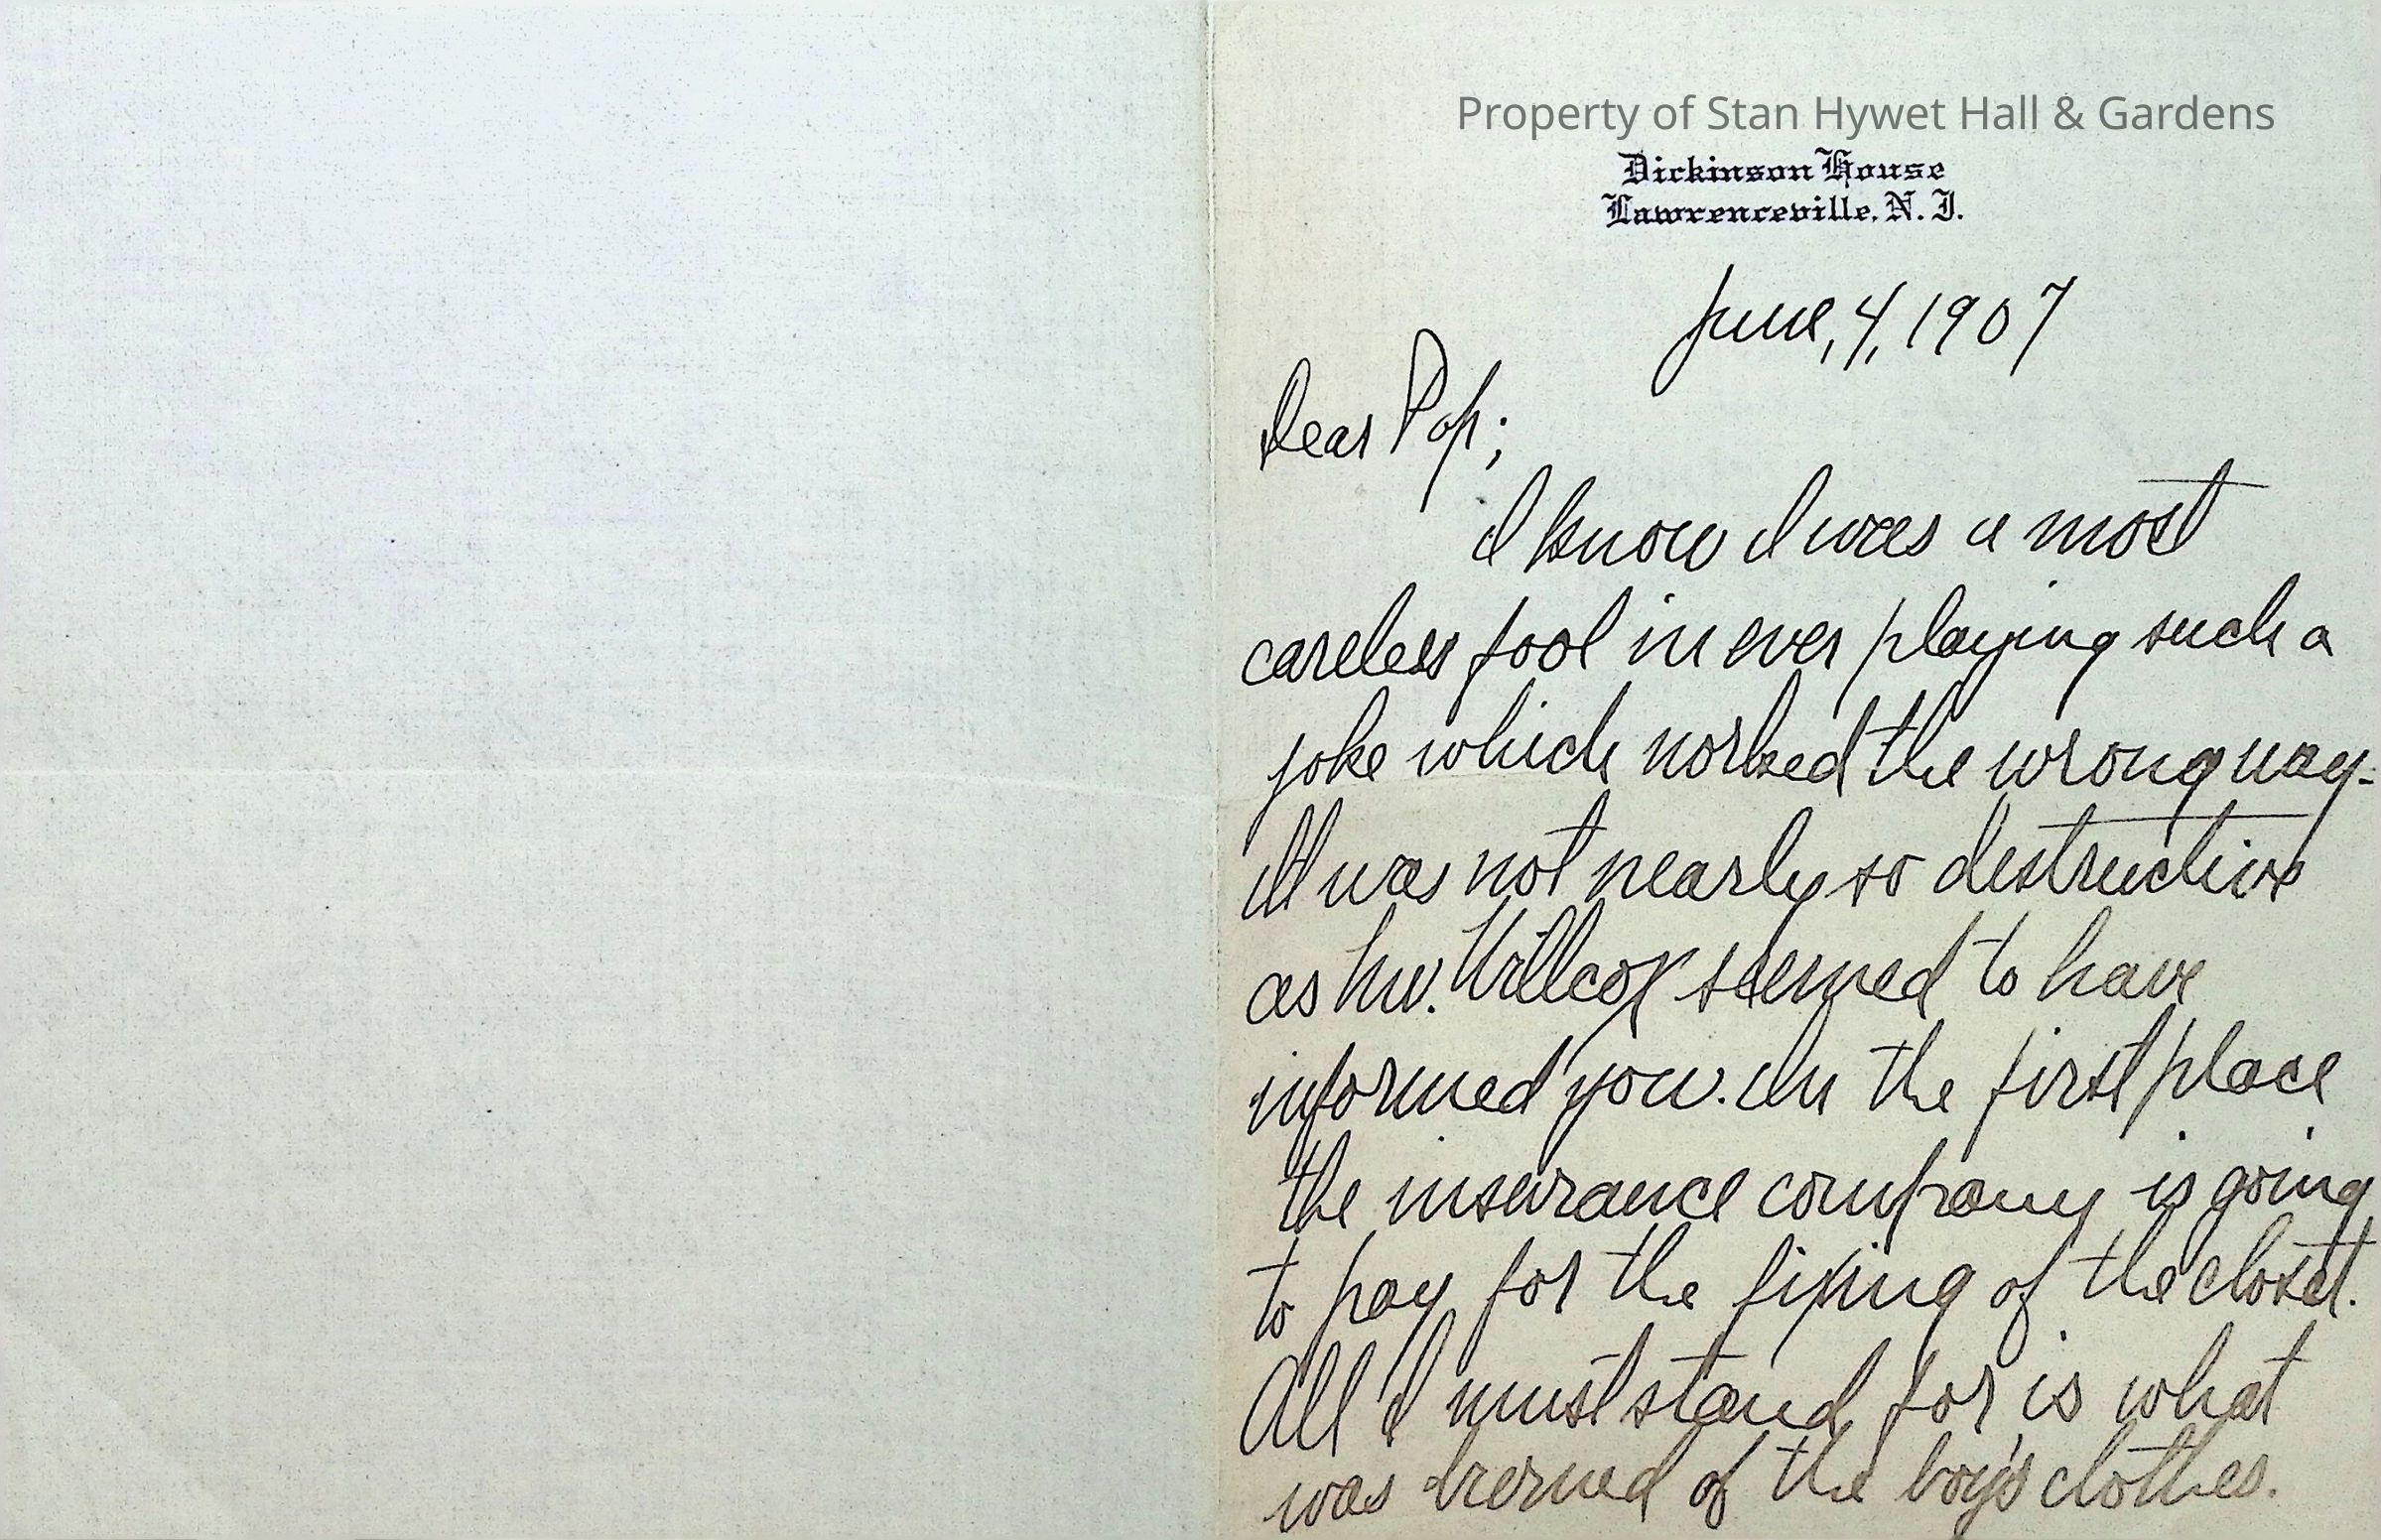 Property of Stan Hywet Hall & Gardens
Dickinson House
Lawrenceville, N. J.
June, 4, 1907
Dear Pop;
I know I was a most
careless fool in ever playing such a
joke which worked the wrong way-
It was not nearly so destructive
as Mr. Willcox seemed to have
informed you. In the first place
the insurance company is going
to pay for the fixing of the closet.
All I must stand for is what
was burned of the boy's clothes.